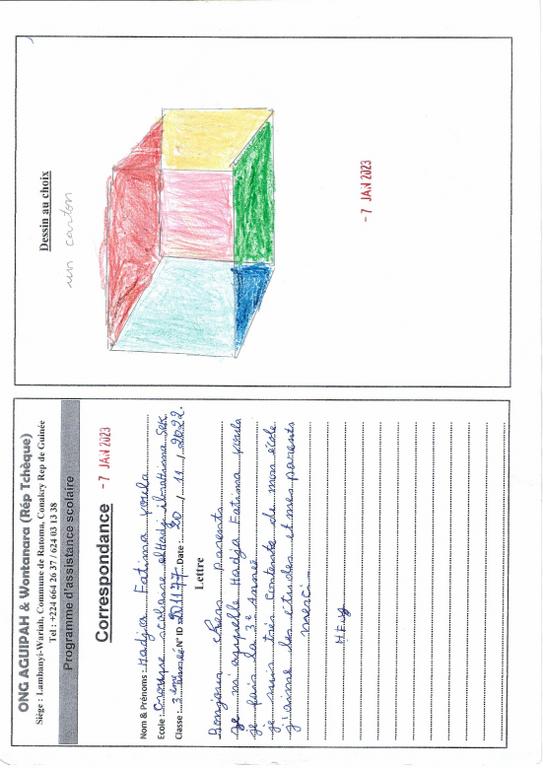 ONG AGUIPAH & Wontanara (Rép Tchèque)
Siège : Lambanyi-Wariah, Commune de Ratoma, Conakry Rep de Guinée
Tel : +224 664 26 37 / 624 03 13 38
Programme d'assistance scolaire
Correspondance
- 7 JAN 2023
Nom & Prénoms : Hadja Fatima youla
Ecole : Groupe scolaire elHadj ibrahima Sek
Classe : 3ème année N° ID 201177 Date : 20 / 11 / 2022
Lettre
Bonjour chers parents
je m'appelle Hadja Fatima youla
je fais la 3è année
je suis très contente de mon école
j'aime les études et mes parents
merci
Dessin au choix
un carton
- 7 JAN 2023